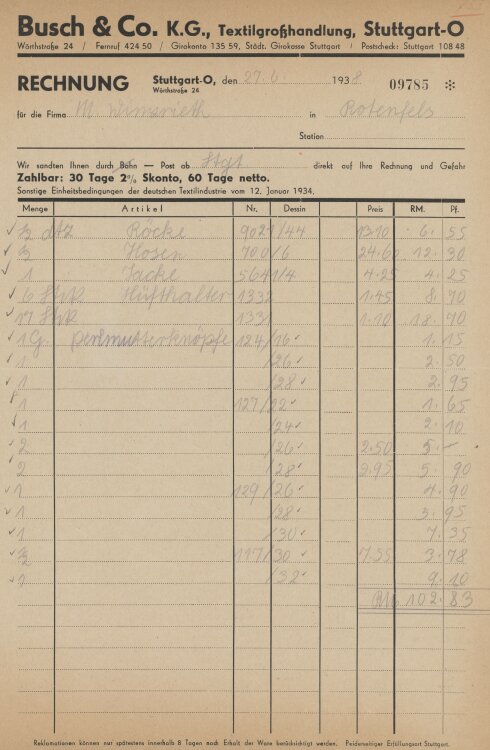 Busch & Co. K.G., Textilgroßhandlung, Stuttgart-O
Wörthstraße 24 / Fernruf 424 50 / Girokonto 135 59, Städt. Girokasse Stuttgart / Postscheck: Stuttgart 108 48
RECHNUNG Stuttgart-O, den 27.6. 1938 09785 *
Wörthstraße 24
für die Firma M. in Rotenfels
Station
Wir sandten Ihnen durch Bahn — Post ab Stgt direkt auf Ihre Rechnung und Gefahr
Zahlbar: 30 Tage 2% Skonto, 60 Tage netto.
Sonstige Einheitsbedingungen der deutschen Textilindustrie vom 12. Januar 1934.
Menge Artikel Nr. Dessin Preis RM. Pf.
½ dtz Röcke 9021/44 13.10 6. 55
½ Hosen 700/6 24.60 12. 30
1 Jacke 5641/4 4.25 4. 25
6 Stck Hüfthalter 1332 1.45 8. 70
17 Stck 133 1.10 18. 70
1 G. Perlmutterknöpfe 124/16 1. 15
1 /26 2. 50
1 /28 2. 95
1 127/22 1. 65
1 /24 2. 10
2 /26 2.50 5. —
2 /28 2.95 5. 90
1 129/26 4. 90
1 /28 3. 95
1 /30 7. 35
½ 117/30 7.55 3. 78
1 /32 9. 10
RM. 102. 83
Reklamationen können nur spätestens innerhalb 8 Tagen nach Erhalt der Ware berücksichtigt werden. Beiderseitiger Erfüllungsort Stuttgart.